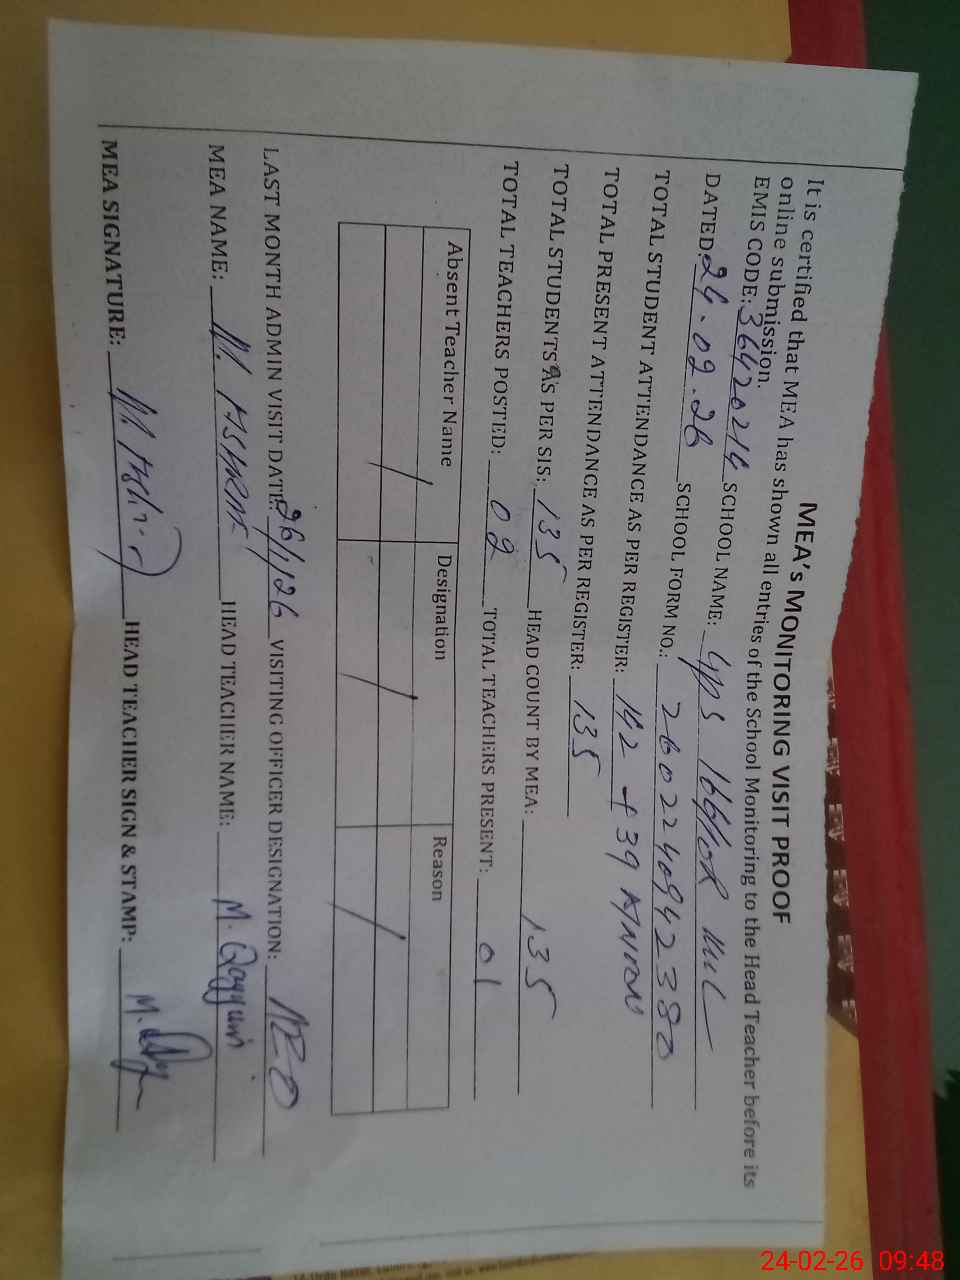 MEA's MONITORING VISIT PROOF
It is certified that MEA has shown all entries of the School Monitoring to the Head Teacher before its
online submission.
EMIS CODE: 36420214 SCHOOL NAME: GPS
DATED: 24.02.26 SCHOOL FORM NO.: 2602240942380
TOTAL STUDENT ATTENDANCE AS PER REGISTER: 142 + 39
TOTAL PRESENT ATTENDANCE AS PER REGISTER: 135
TOTAL STUDENTS AS PER SIS: 135 HEAD COUNT BY MEA: 135
TOTAL TEACHERS POSTED: 02 TOTAL TEACHERS PRESENT: 01
Absent Teacher Name Designation Reason
LAST MONTH ADMIN VISIT DATE: 26/1/26 VISITING OFFICER DESIGNATION: AEO
MEA NAME: M. HEAD TEACHER NAME: M. Qayyum
MEA SIGNATURE: HEAD TEACHER SIGN & STAMP: M.
24-02-26 09:48